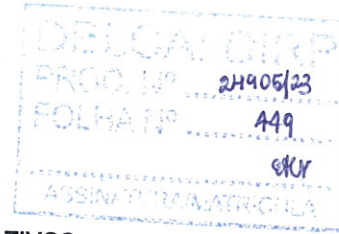 DELCA/DIRP
PROC. Nº 24905/23
FOLHA Nº 449
ASSINATURA/MATRÍCULA